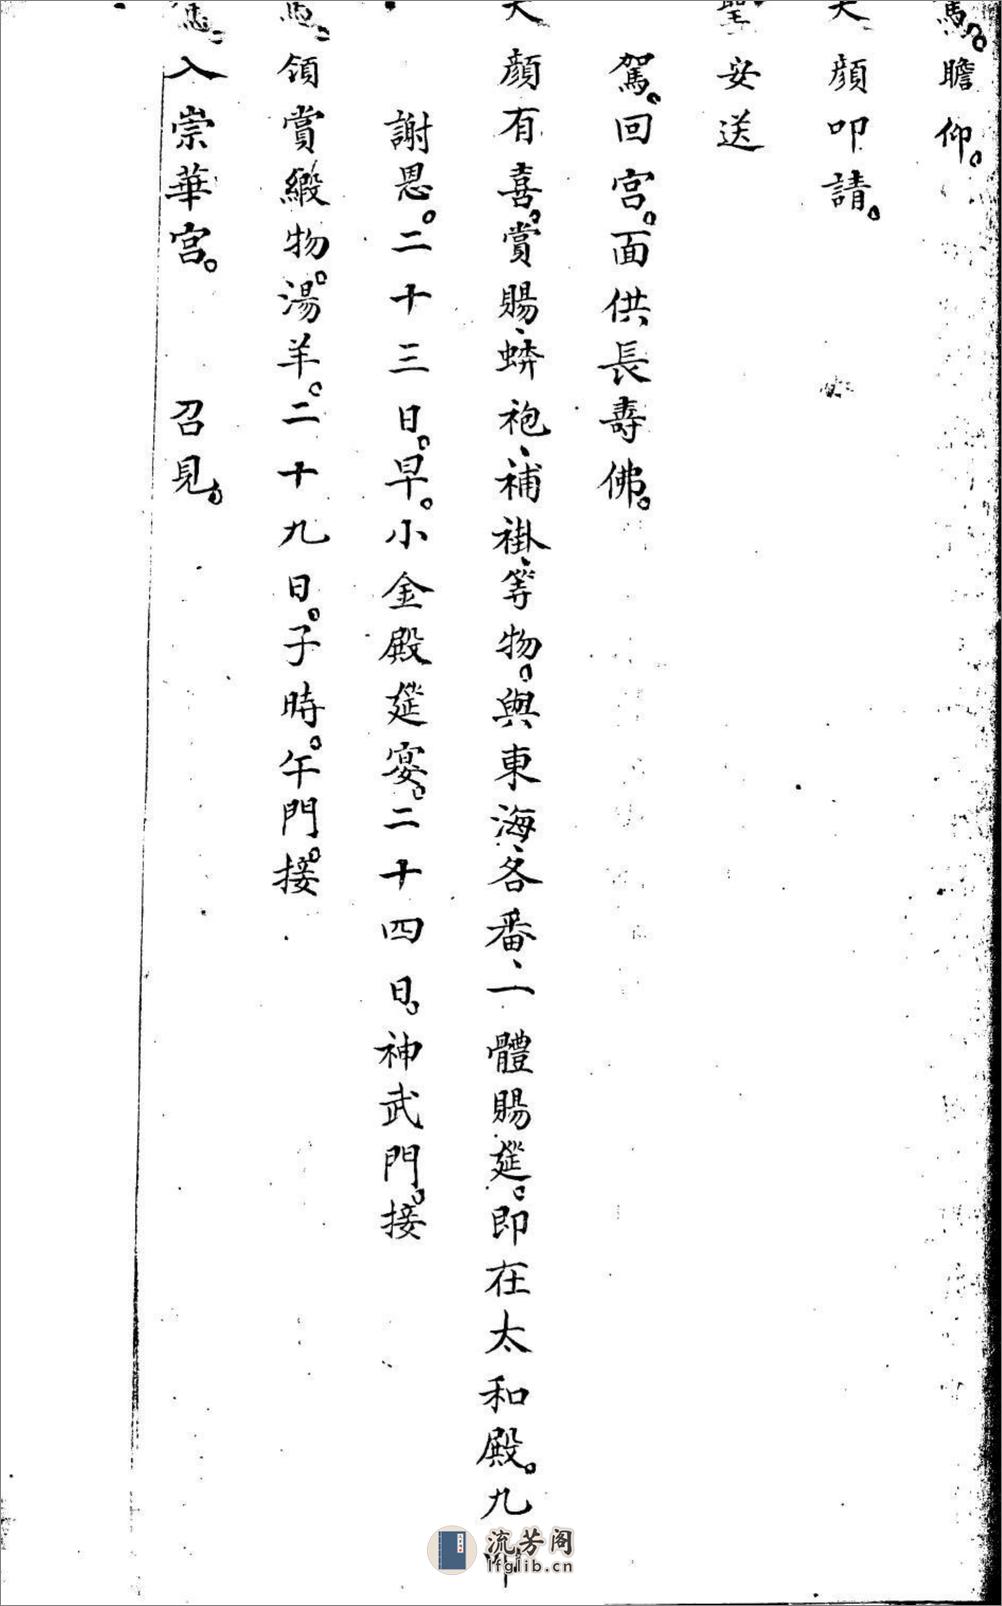 駕。瞻仰。
天顔叩請。
聖安送
駕。回宮。面供長壽佛。
天顔有喜。賞賜、蟒袍、補褂、等物。與東海、各番、一體賜筵。即在太和殿。九叩
謝恩。二十三日。早。小金殿筵宴。二十四日。神武門。接
領賞緞物。湯羊。二十九日。子時。午門。接
入崇華宮。 召見。
流芳阁
lfglib.cn